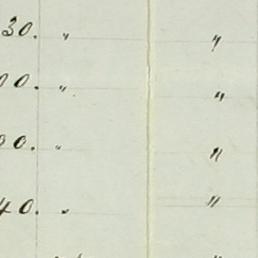 30. " "
00. " "
00. " "
40. " "